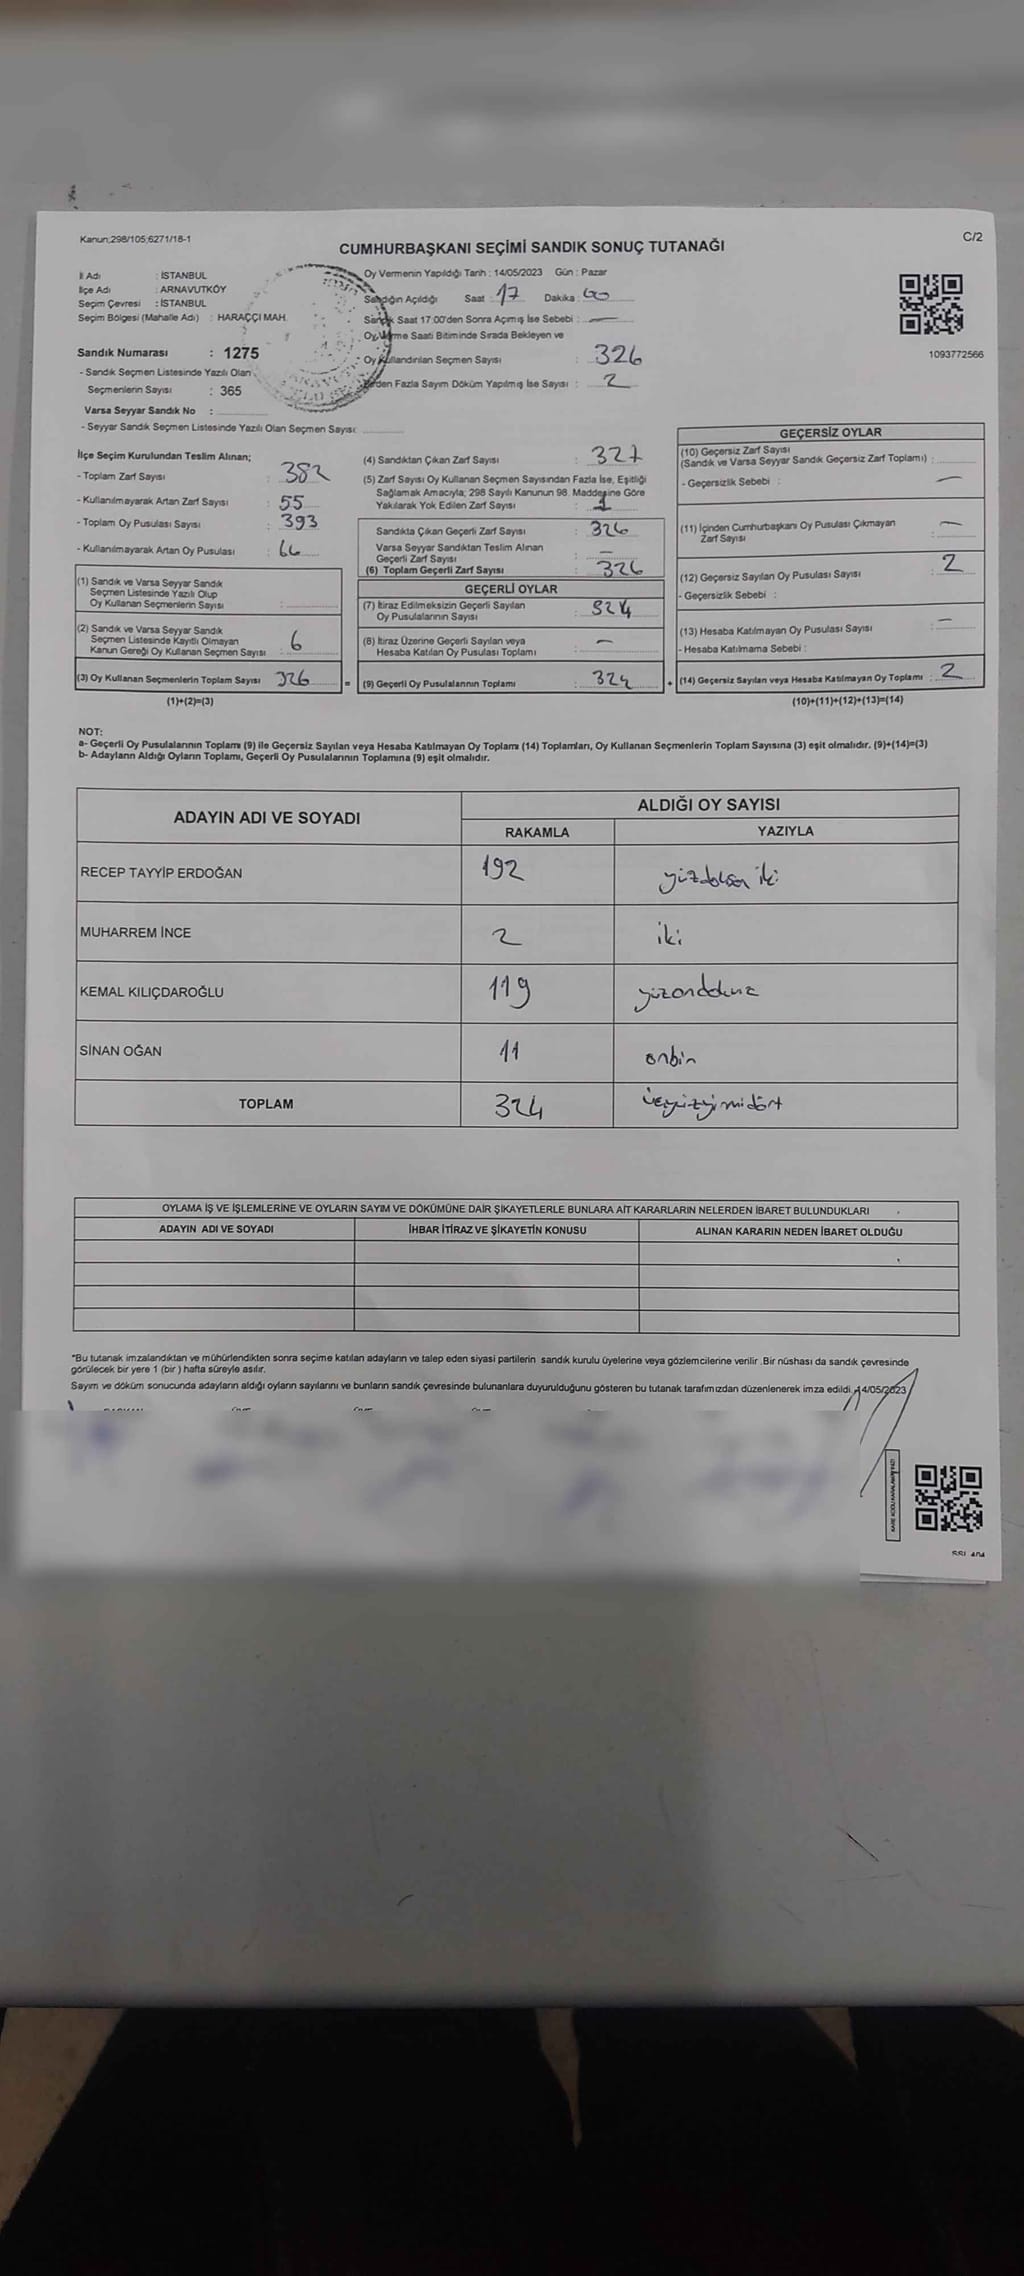 Kanun;298/105;6271/18-1
C/2
CUMHURBAŞKANI SEÇİMİ SANDIK SONUÇ TUTANAĞI
İl Adı : İSTANBUL
İlçe Adı : ARNAVUTKÖY
Seçim Çevresi : İSTANBUL
Seçim Bölgesi (Mahalle Adı) : HARAÇÇI MAH.
Sandık Numarası : 1275
- Sandık Seçmen Listesinde Yazılı Olan
Seçmenlerin Sayısı : 365
Varsa Seyyar Sandık No :
- Seyyar Sandık Seçmen Listesinde Yazılı Olan Seçmen Sayısı:
Oy Vermenin Yapıldığı Tarih : 14/05/2023 Gün : Pazar
Sandığın Açıldığı Saat : 17 Dakika :
Sandık Saat 17:00'den Sonra Açımış İse Sebebi : —
Oy Verme Saati Bitiminde Sırada Bekleyen ve
Oy Kullandırılan Seçmen Sayısı : 326
Birden Fazla Sayım Döküm Yapılmış İse Sayısı : 2
1093772566
İlçe Seçim Kurulundan Teslim Alınan;
- Toplam Zarf Sayısı : 382
- Kullanılmayarak Artan Zarf Sayısı : 55
- Toplam Oy Pusulası Sayısı : 393
- Kullanılmayarak Artan Oy Pusulası : 66
(1) Sandık ve Varsa Seyyar Sandık
Seçmen Listesinde Yazılı Olup
Oy Kullanan Seçmenlerin Sayısı :
(2) Sandık ve Varsa Seyyar Sandık
Seçmen Listesinde Kayıtlı Olmayan
Kanun Gereği Oy Kullanan Seçmen Sayısı : 6
(3) Oy Kullanan Seçmenlerin Toplam Sayısı : 326
(1)+(2)=(3)
(4) Sandıktan Çıkan Zarf Sayısı : 327
(5) Zarf Sayısı Oy Kullanan Seçmen Sayısından Fazla İse, Eşitliği
Sağlamak Amacıyla; 298 Sayılı Kanunun 98. Maddesine Göre
Yakılarak Yok Edilen Zarf Sayısı : 1
Sandıkta Çıkan Geçerli Zarf Sayısı : 326
Varsa Seyyar Sandıktan Teslim Alınan
Geçerli Zarf Sayısı : —
(6) Toplam Geçerli Zarf Sayısı : 326
GEÇERLİ OYLAR
(7) İtiraz Edilmeksizin Geçerli Sayılan
Oy Pusulalarının Sayısı : 324
(8) İtiraz Üzerine Geçerli Sayılan veya
Hesaba Katılan Oy Pusulası Toplamı : —
= (9) Geçerli Oy Pusulalarının Toplamı : 324 +
GEÇERSİZ OYLAR
(10) Geçersiz Zarf Sayısı
(Sandık ve Varsa Seyyar Sandık Geçersiz Zarf Toplamı) :
- Geçersizlik Sebebi : —
(11) İçinden Cumhurbaşkanı Oy Pusulası Çıkmayan
Zarf Sayısı : —
(12) Geçersiz Sayılan Oy Pusulası Sayısı : 2
- Geçersizlik Sebebi :
(13) Hesaba Katılmayan Oy Pusulası Sayısı : —
- Hesaba Katılmama Sebebi :
(14) Geçersiz Sayılan veya Hesaba Katılmayan Oy Toplamı : 2
(10)+(11)+(12)+(13)=(14)
NOT:
a- Geçerli Oy Pusulalarının Toplamı (9) ile Geçersiz Sayılan veya Hesaba Katılmayan Oy Toplamı (14) Toplamları, Oy Kullanan Seçmenlerin Toplam Sayısına (3) eşit olmalıdır. (9)+(14)=(3)
b- Adayların Aldığı Oyların Toplamı, Geçerli Oy Pusulalarının Toplamına (9) eşit olmalıdır.
ADAYIN ADI VE SOYADI ALDIĞI OY SAYISI
RAKAMLA YAZIYLA
RECEP TAYYİP ERDOĞAN 192
MUHARREM İNCE 2 iki
KEMAL KILIÇDAROĞLU 119
SİNAN OĞAN 11 onbir
TOPLAM 324 üçyüzyirmidört
OYLAMA İŞ VE İŞLEMLERİNE VE OYLARIN SAYIM VE DÖKÜMÜNE DAİR ŞİKAYETLERLE BUNLARA AİT KARARLARIN NELERDEN İBARET BULUNDUKLARI
ADAYIN ADI VE SOYADI İHBAR İTİRAZ VE ŞİKAYETİN KONUSU ALINAN KARARIN NEDEN İBARET OLDUĞU
*Bu tutanak imzalandıktan ve mühürlendikten sonra seçime katılan adayların ve talep eden siyasi partilerin sandık kurulu üyelerine veya gözlemcilerine verilir .Bir nüshası da sandık çevresinde
görülecek bir yere 1 (bir ) hafta süreyle asılır.
Sayım ve döküm sonucunda adayların aldığı oyların sayılarını ve bunların sandık çevresinde bulunanlara duyurulduğunu gösteren bu tutanak tarafımızdan düzenlenerek imza edildi. 14/05/2023